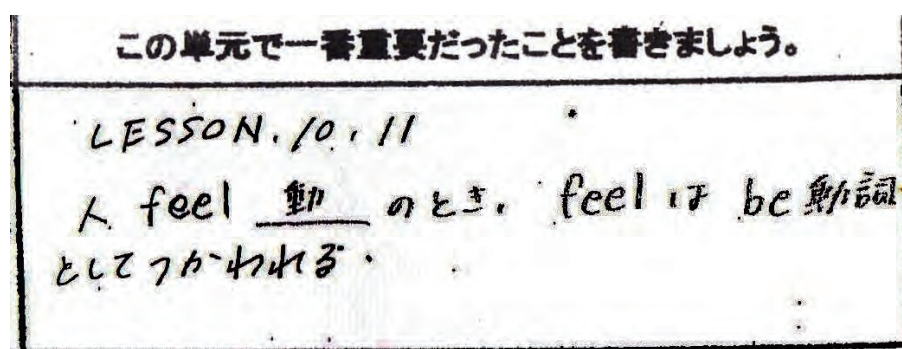 この単元で一番重要だったことを書きましょう。
LESSON. 10. 11
人 feel 動 のとき. feel は be 動詞
としてつかわれる.